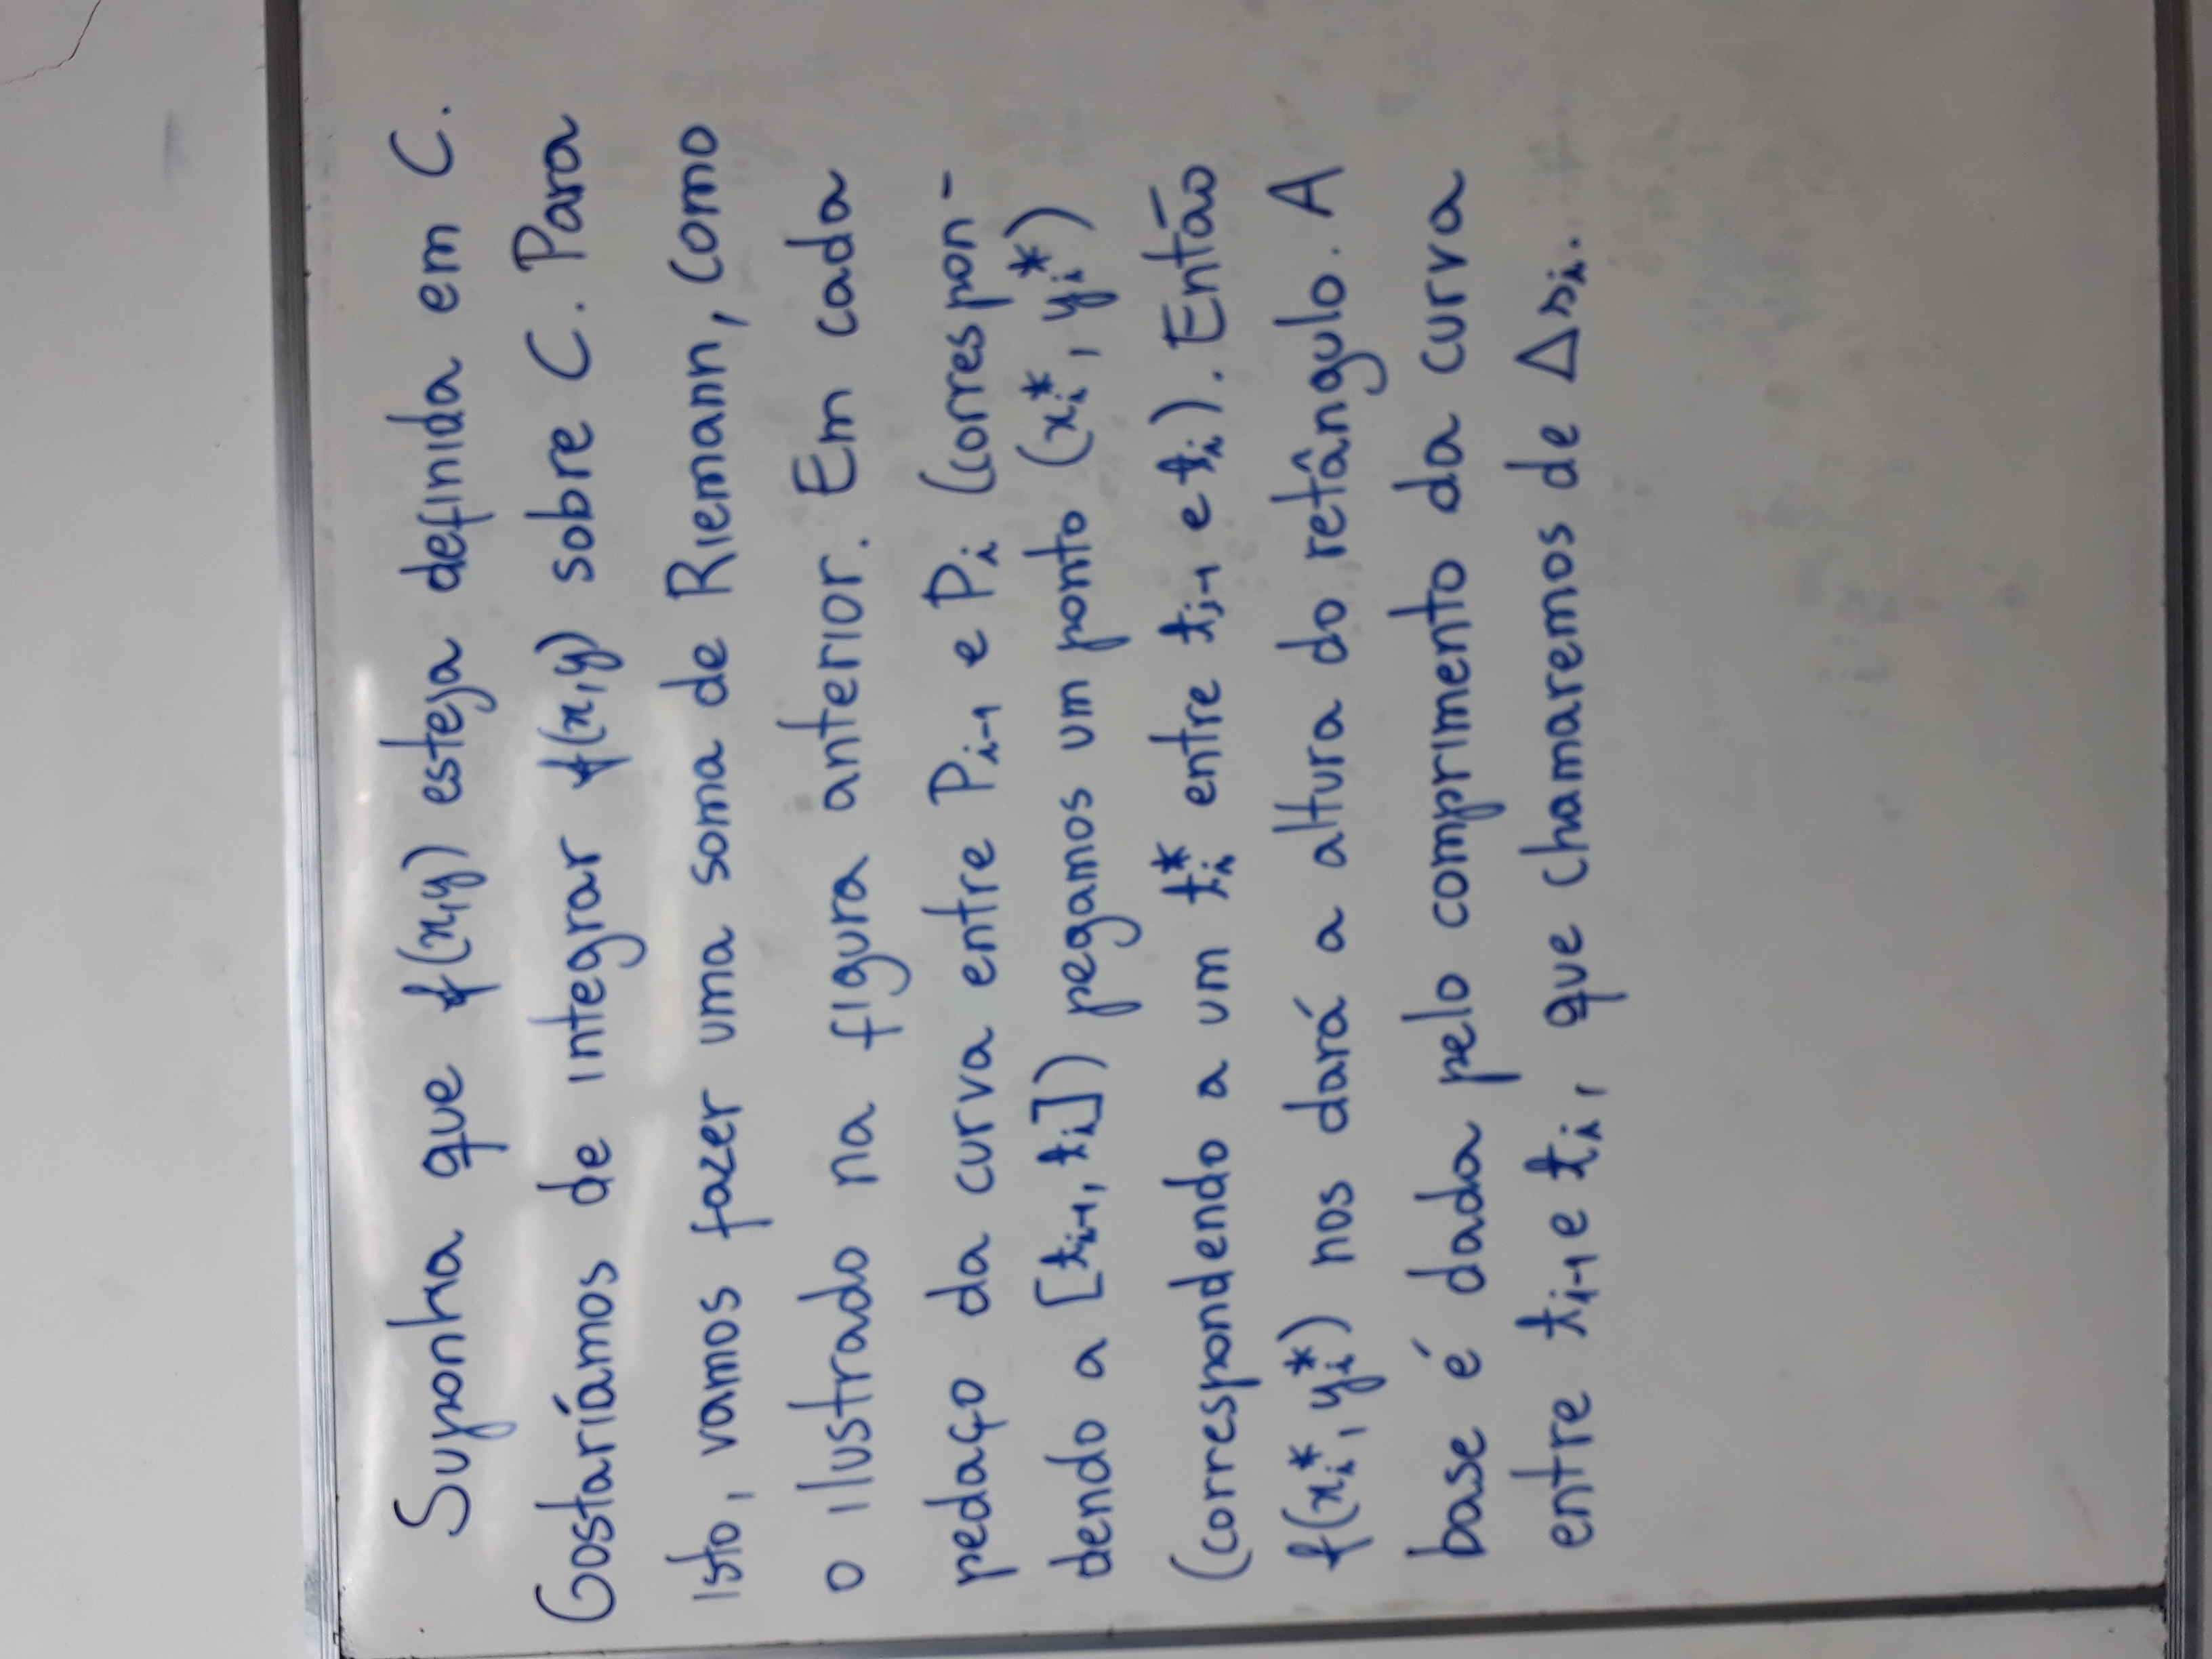 Suponha que f(x,y) esteja definida em C.
Gostaríamos de integrar f(x,y) sobre C. Para
isto, vamos fazer uma soma de Riemann, como
o ilustrado na figura anterior. Em cada
pedaço da curva entre Pᵢ₋₁ e Pᵢ (correspon-
dendo a [tᵢ₋₁, tᵢ]) pegamos um ponto (xᵢ*, yᵢ*)
(correspondendo a um tᵢ* entre tᵢ₋₁ e tᵢ). Então
f(xᵢ*, yᵢ*) nos dará a altura do retângulo. A
base é dada pelo comprimento da curva
entre tᵢ₋₁ e tᵢ, que chamaremos de Δsᵢ.